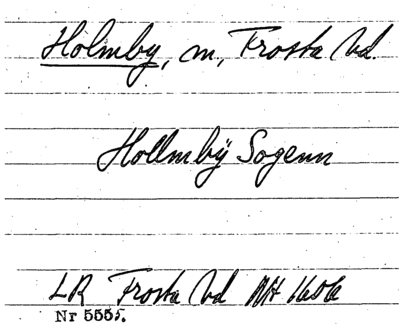 Holmby, m, Frosta hd.
Hollmbÿ Sogenn
LR Frosta hd
Nr 5555.